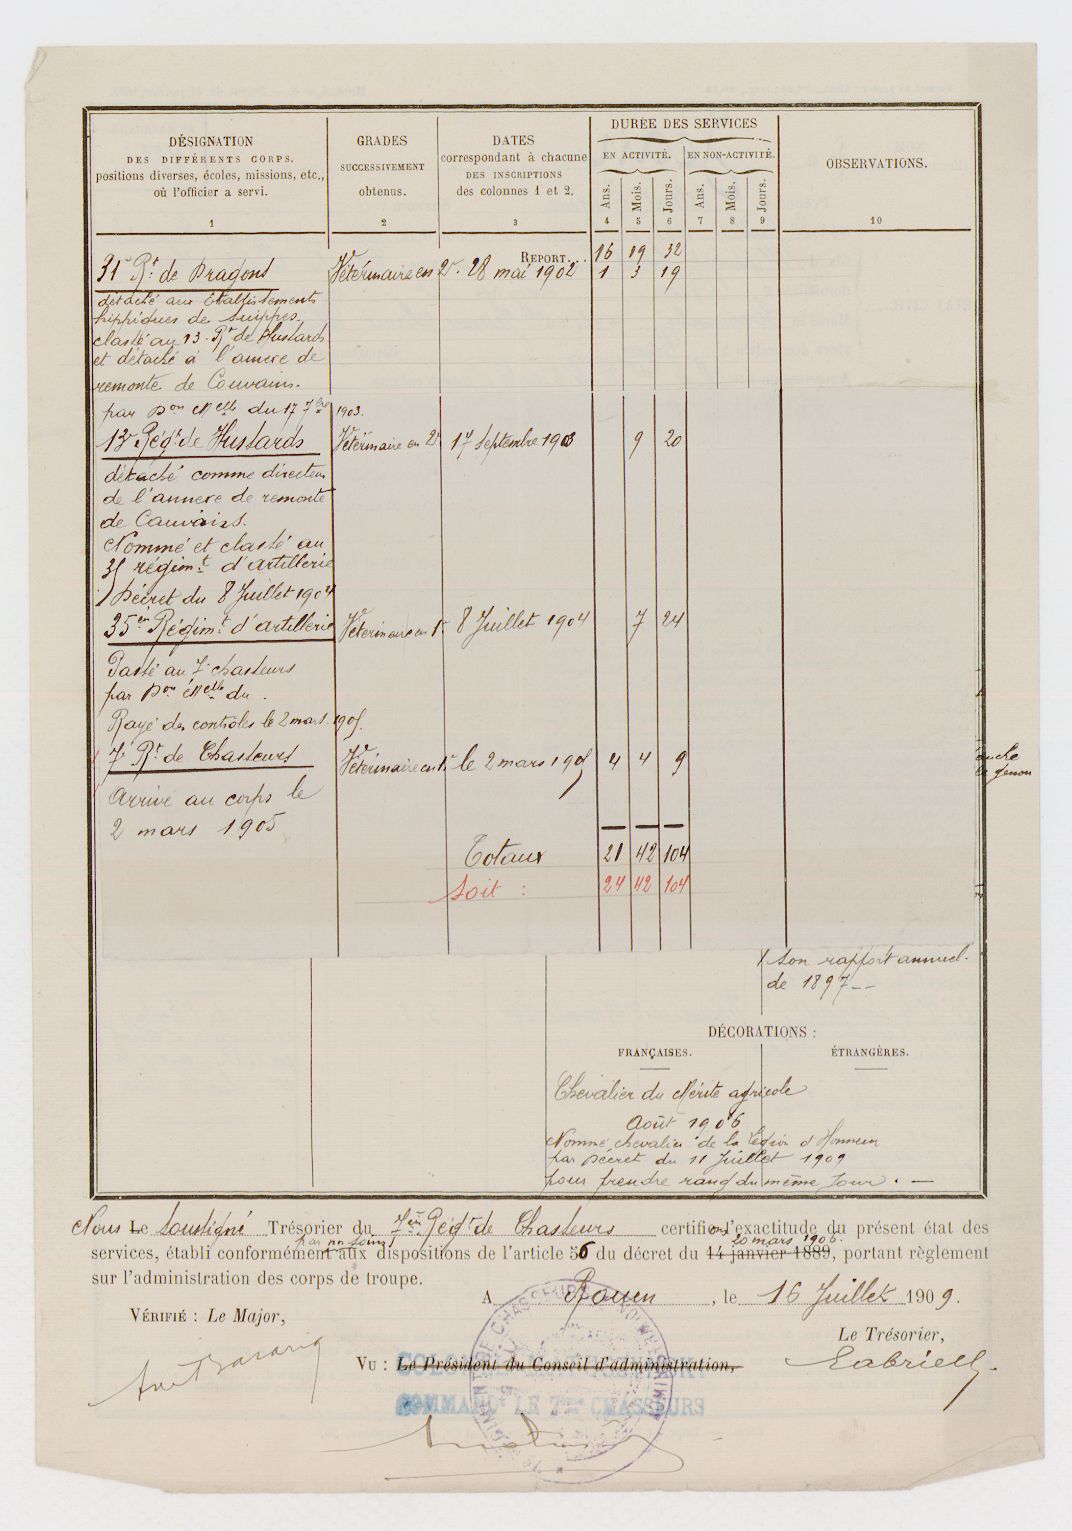 DÉSIGNATION
DES DIFFÉRENTS CORPS.
positions diverses, écoles, missions, etc.,
où l'officier a servi.
1
GRADES
SUCCESSIVEMENT
obtenus.
2
DATES
correspondant à chacune
DES INSCRIPTIONS
des colonnes 1 et 2.
3
DURÉE DES SERVICES
EN ACTIVITÉ. EN NON-ACTIVITÉ.
Ans. Mois. Jours. Ans. Mois. Jours.
4 5 6 7 8 9
OBSERVATIONS.
10
REPORT... 16 19 32
31e Rt de Dragons Vétérinaire en 2d. 28 mai 1902 1 3 19
détaché aux Etablissements
hippiques de Suippes.
classé au 13e Rt de Hussards
et détaché à l'annexe de
remonte de Cauvains.
par Don Melle du 17 7bre 1903.
13e Régt de Hussards Vétérinaire en 2d 17 Septembre 1903 9 20
détaché comme directeur
de l'annexe de remonte
de Cauvains.
Nommé et classé au
35 régimt d'artillerie
Décret du 8 Juillet 1904
35en Régimt d'artillerie Vétérinaire en 1r 8 Juillet 1904 7 24
Passé au 7e chasseurs
par Don Melle du .
Rayé des contrôles le 2 mars 1905.
7e Rt de Chasseurs Vétérinaire en 1r le 2 mars 1905 4 4 9
Arrivé au corps le
2 mars 1905
Totaux 21 42 104
Soit : 24 42 104
le genou
son rapport annuel.
de 1897 --
DÉCORATIONS :
FRANÇAISES. ÉTRANGÈRES.
Chevalier du Mérite agricole
Août 1906
Nommé chevalier de la Légion d'Honneur
par Décret du 11 Juillet 1909
pour prendre rang du même jour. —
Nous Le soussigné Trésorier du 7en Régt de Chasseurs certifions l'exactitude du présent état des
services, établi par nos soins conformément aux dispositions de l'article 56 du décret du 14 janvier 1889 20 mars 1906., portant règlement
sur l'administration des corps de troupe.
A Rouen, le 16 Juillet 1909.
VÉRIFIÉ : Le Major,
Le Trésorier,
VU : Le Président du Conseil d'administration,
COLONEL
COMMANDt LE 7me CHASSEURS
Gabriell